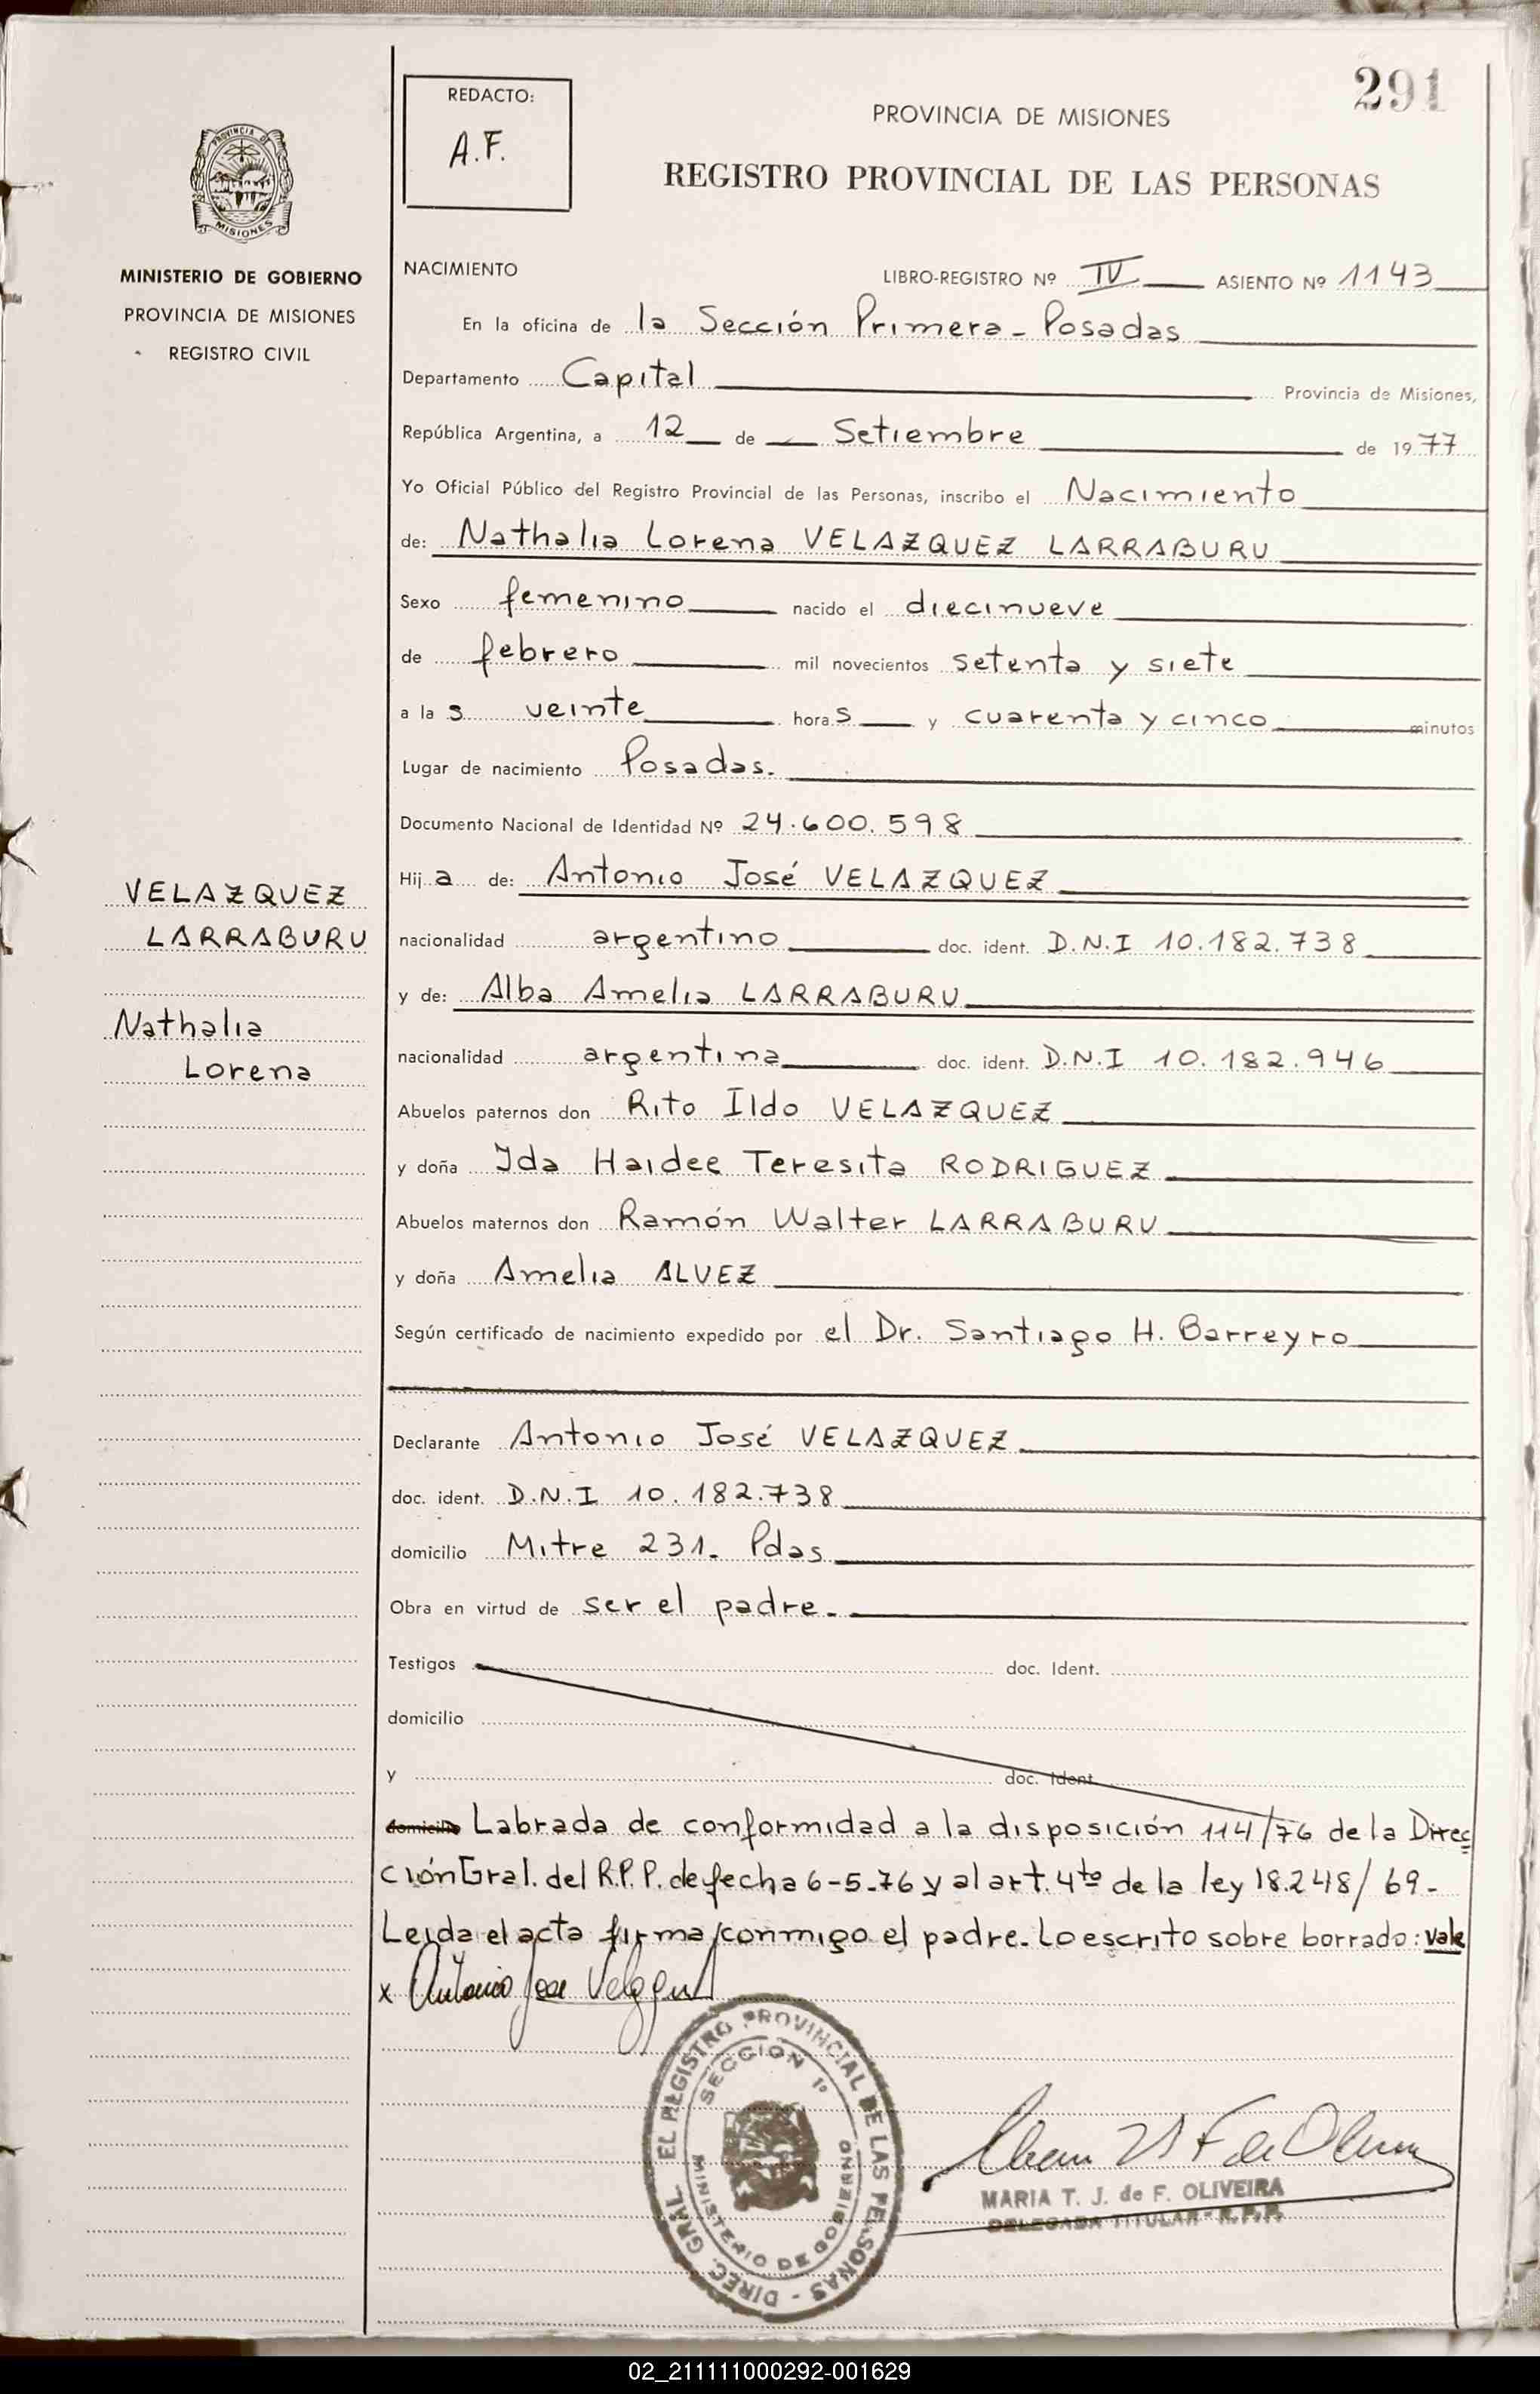 291
REDACTO:
A.F.
PROVINCIA DE MISIONES
REGISTRO PROVINCIAL DE LAS PERSONAS
PROVINCIA DE
MISIONES
MINISTERIO DE GOBIERNO
PROVINCIA DE MISIONES
REGISTRO CIVIL
NACIMIENTO LIBRO-REGISTRO Nº IV ASIENTO Nº 1143
En la oficina de la Sección Primera - Posadas
Departamento Capital Provincia de Misiones,
República Argentina, a 12 de Setiembre de 1977
Yo Oficial Público del Registro Provincial de las Personas, inscribo el Nacimiento
de: Nathalia Lorena VELAZQUEZ LARRABURU
Sexo femenino nacido el diecinueve
de febrero mil novecientos setenta y siete
a la s veinte hora s y cuarenta y cinco minutos
Lugar de nacimiento Posadas.
Documento Nacional de Identidad Nº 24.600.598
Hij a de: Antonio José VELAZQUEZ
nacionalidad argentino doc. ident. D.N.I 10.182.738
y de: Alba Amelia LARRABURU
nacionalidad argentina doc. ident. D.N.I 10.182.946
Abuelos paternos don Rito Ildo VELAZQUEZ
y doña Ida Haidee Teresita RODRIGUEZ
Abuelos maternos don Ramón Walter LARRABURU
y doña Amelia ALVEZ
Según certificado de nacimiento expedido por el Dr. Santiago H. Barreyro
Declarante Antonio José VELAZQUEZ
doc. ident. D.N.I 10.182.738
domicilio Mitre 231. Pdas
Obra en virtud de ser el padre.
Testigos doc. Ident.
domicilio
y doc. Ident.
domicilio Labrada de conformidad a la disposición 114/76 de la Direc
ción Gral. del R.P.P. de fecha 6-5-76 y al art. 4to de la ley 18.248/69-
Leida el acta firma conmigo el padre. Lo escrito sobre borrado: vale
x Antonio Jose Velazquez
VELAZQUEZ
LARRABURU
Nathalia
Lorena
DIREC. GRAL. EL REGISTRO PROVINCIAL DE LAS PERSONAS -
SECCION 1º
MINISTERIO DE GOBIERNO
MARIA T. J. de F. OLIVEIRA
DELEGADA TITULAR - R.P.P.
02_211111000292-001629